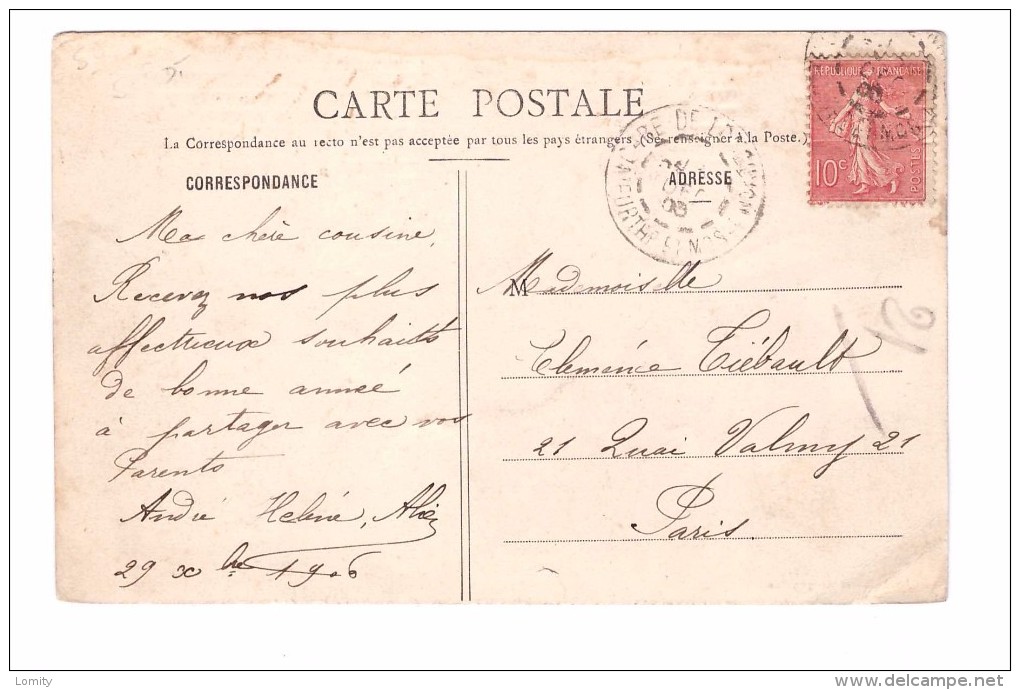 CARTE POSTALE
La Correspondance au recto n'est pas acceptée par tous les pays étrangers (Se renseigner à la Poste.)
CORRESPONDANCE
Ma chère cousine,
Recevez nos plus
affectueux souhaits
de bonne année
à partager avec vos
Parents
André Helène,
29 xbre 1906
ADRESSE
Mademoiselle
Clemence Tiébault
21 Quai Valmy 21
Paris
REPUBLIQUE FRANÇAISE
10c
POSTES
GARE DE
MEURTHE ET MOSELLE
Lomity
www.delcampe.net